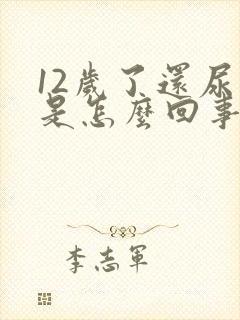 12歲了還尿
是怎麼回事
李志軍